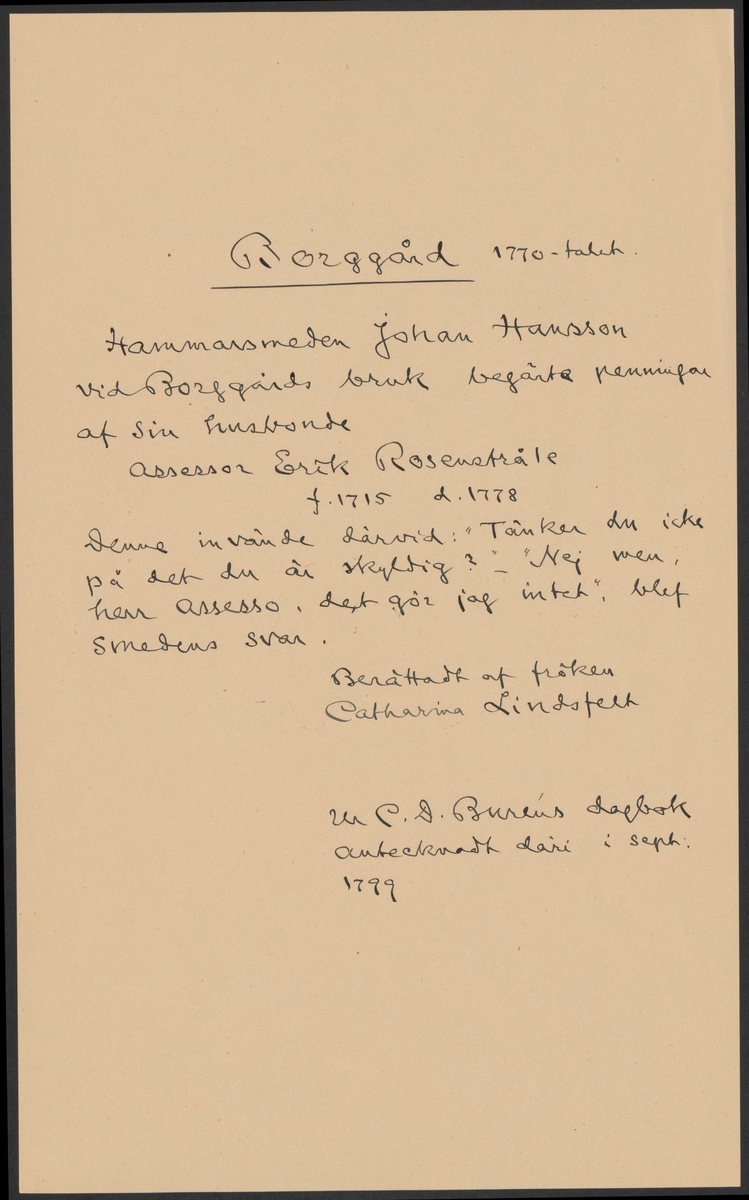 Borggård 1770-talet.
Hammarsmeden Johan Hansson
vid Borggårds bruk begärte penningar
af sin husbonde
assessor Erik Rosenstråle
f. 1715 d. 1778
Denne invände därvid: "Tänker du icke
på det du är skyldig?" – "Nej men,
herr assesso, det gör jag intet", blef
smedens svar.
Berättadt af fröken
Catharina Lindsfelt
Ur C. D. Buréns dagbok
antecknadt däri i sept.
1799